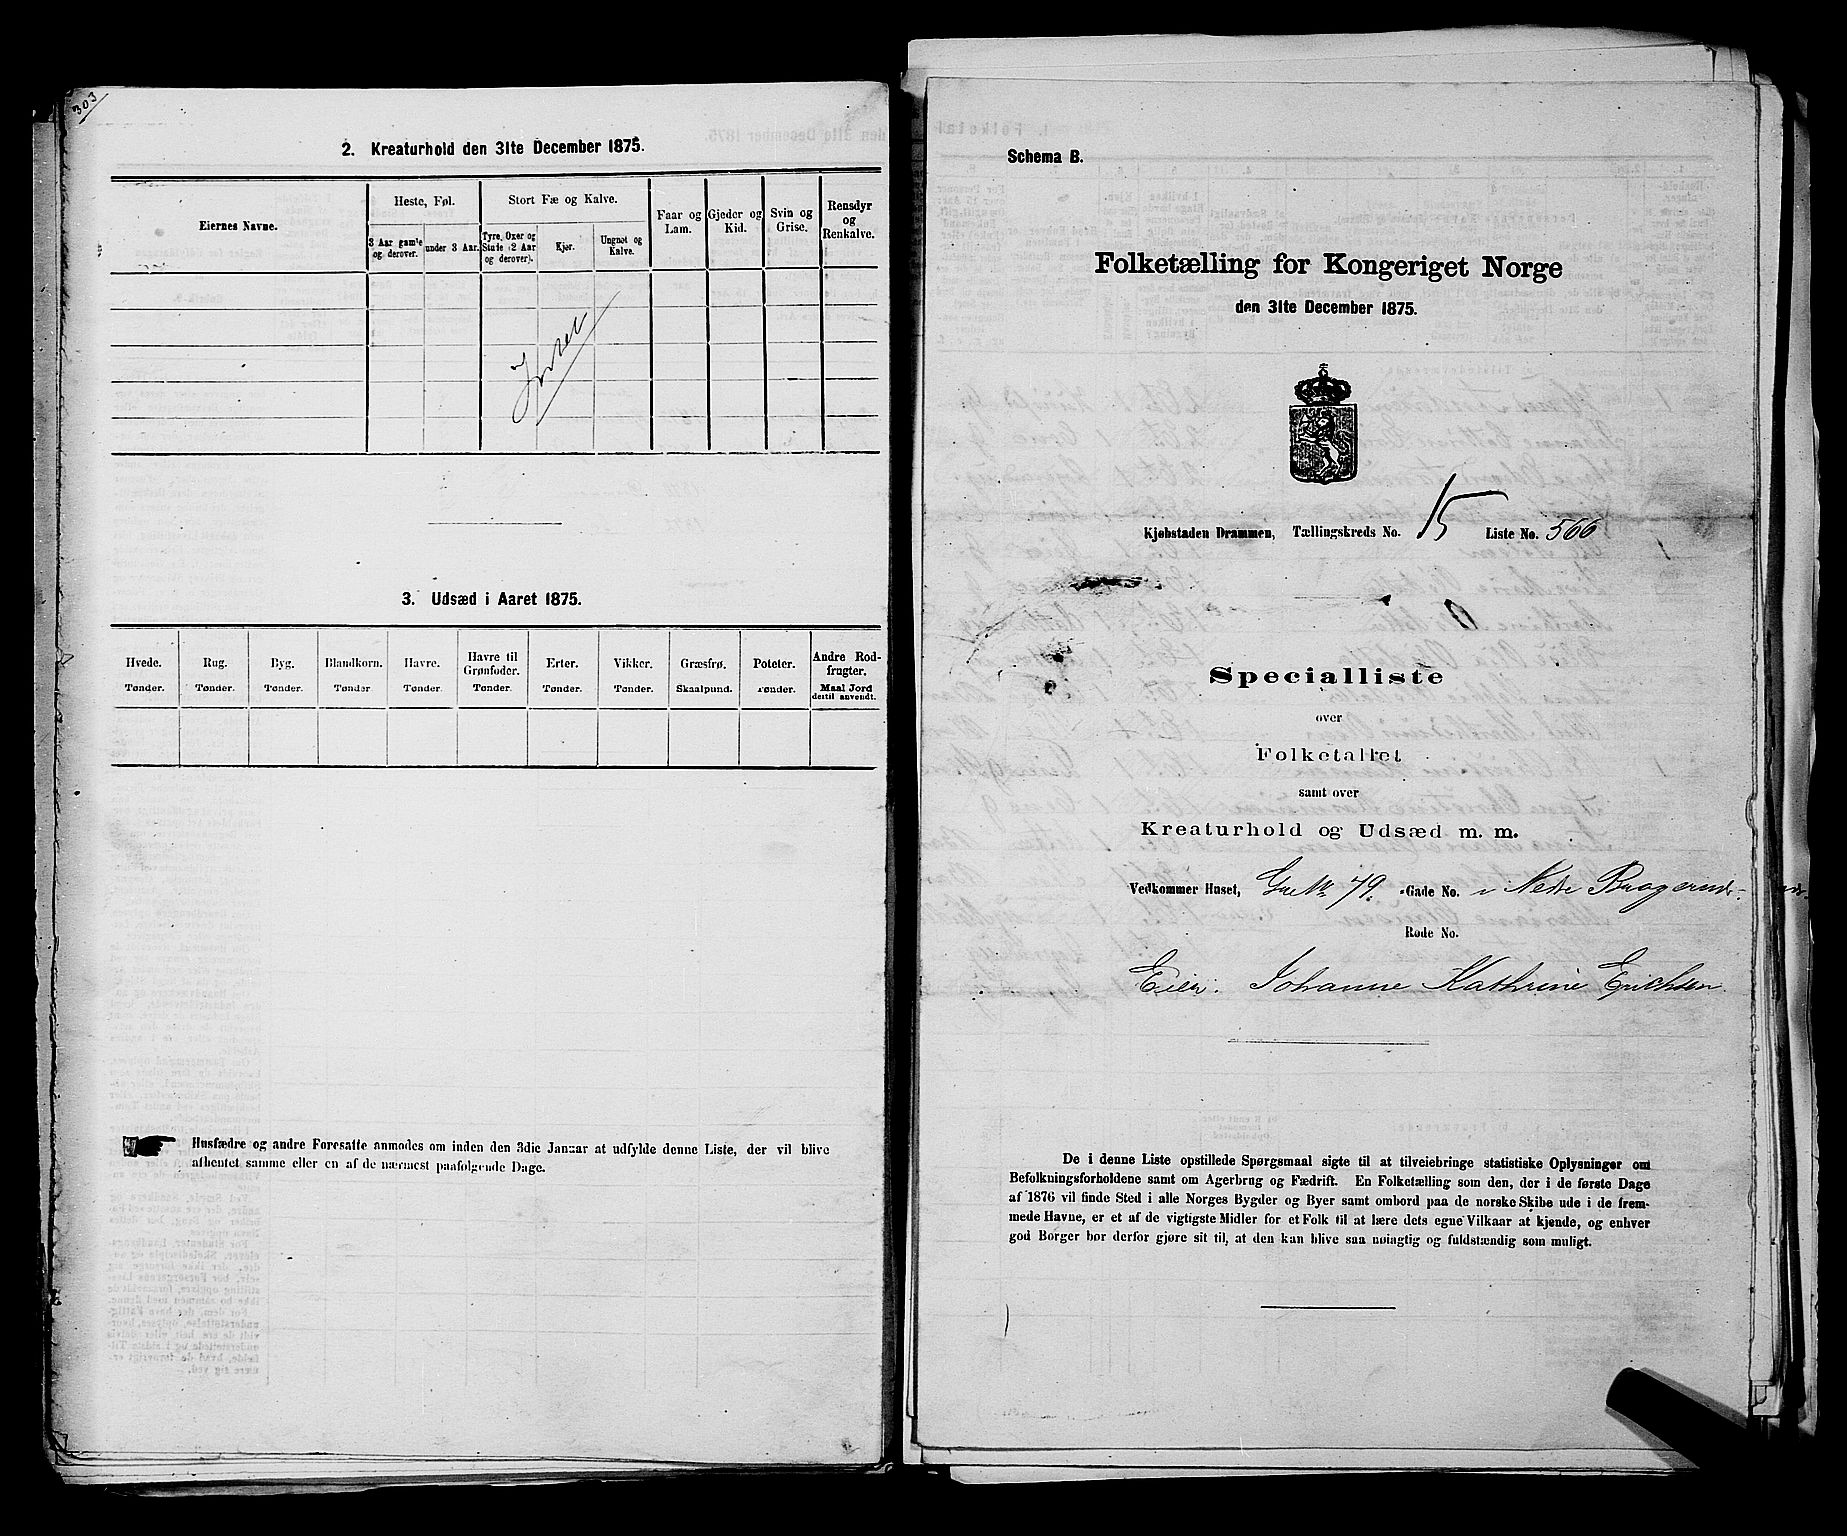 303
2. Kreaturhold den 31te December 1875.
Eiernes Navne.
Heste, Føl.
Stort Fæ og Kalve.
Faar og Lam.
Gjeder og Kid.
Svin og Grise.
Rensdyr og Renkalve.
3 Aar gamle og derover.
under 3 Aar.
Tyre, Oxer og Stude (2 Aar og derover).
Kjør.
Ungnøt og Kalve.
Intet
3. Udsæd i Aaret 1875.
Hvede. Rug. Byg. Blandkorn. Havre. Havre til Grønfoder. Erter. Vikker. Græsfrø. Poteter. Andre Rodfrugter.
Tønder. Tønder. Tønder. Tønder Tønder. Tønder. Tønder. Tønder. Skaalpund. Tønder. Maal Jord dertil anvendt.
Husfædre og andre Foresatte anmodes om inden den 3die Januar at udfylde denne Liste, der vil blive
afhentet samme eller en af de nærmest paafølgende Dage.
Schema B.
Folketælling for Kongeriget Norge
den 31te December 1875.
Kjøbstaden Drammen, Tællingskreds No. 15 Liste No. 566
Specialliste
over
Folketallet
samt over
Kreaturhold og Udsæd m. m.
Vedkommer Huset, 79. Gade No. i Nedre
Rode No.
Eier. Johanne Kathrine Erichsen
De i denne Liste opstillede Spørgsmaal sigte til at tilveiebringe statistiske Oplysninger om
Befolkningsforholdene samt om Agerbrug og Fædrift. En Folketælling som den, der i de første Dage
af 1876 vil finde Sted i alle Norges Bygder og Byer samt ombord paa de norske Skibe ude i de frem-
mede Havne, er et af de vigtigste Midler for et Folk til at lære dets egne Vilkaar at kjende, og enhver
god Borger bør derfor gjøre sit til, at den kan blive saa nøiagtig og fuldstændig som muligt.